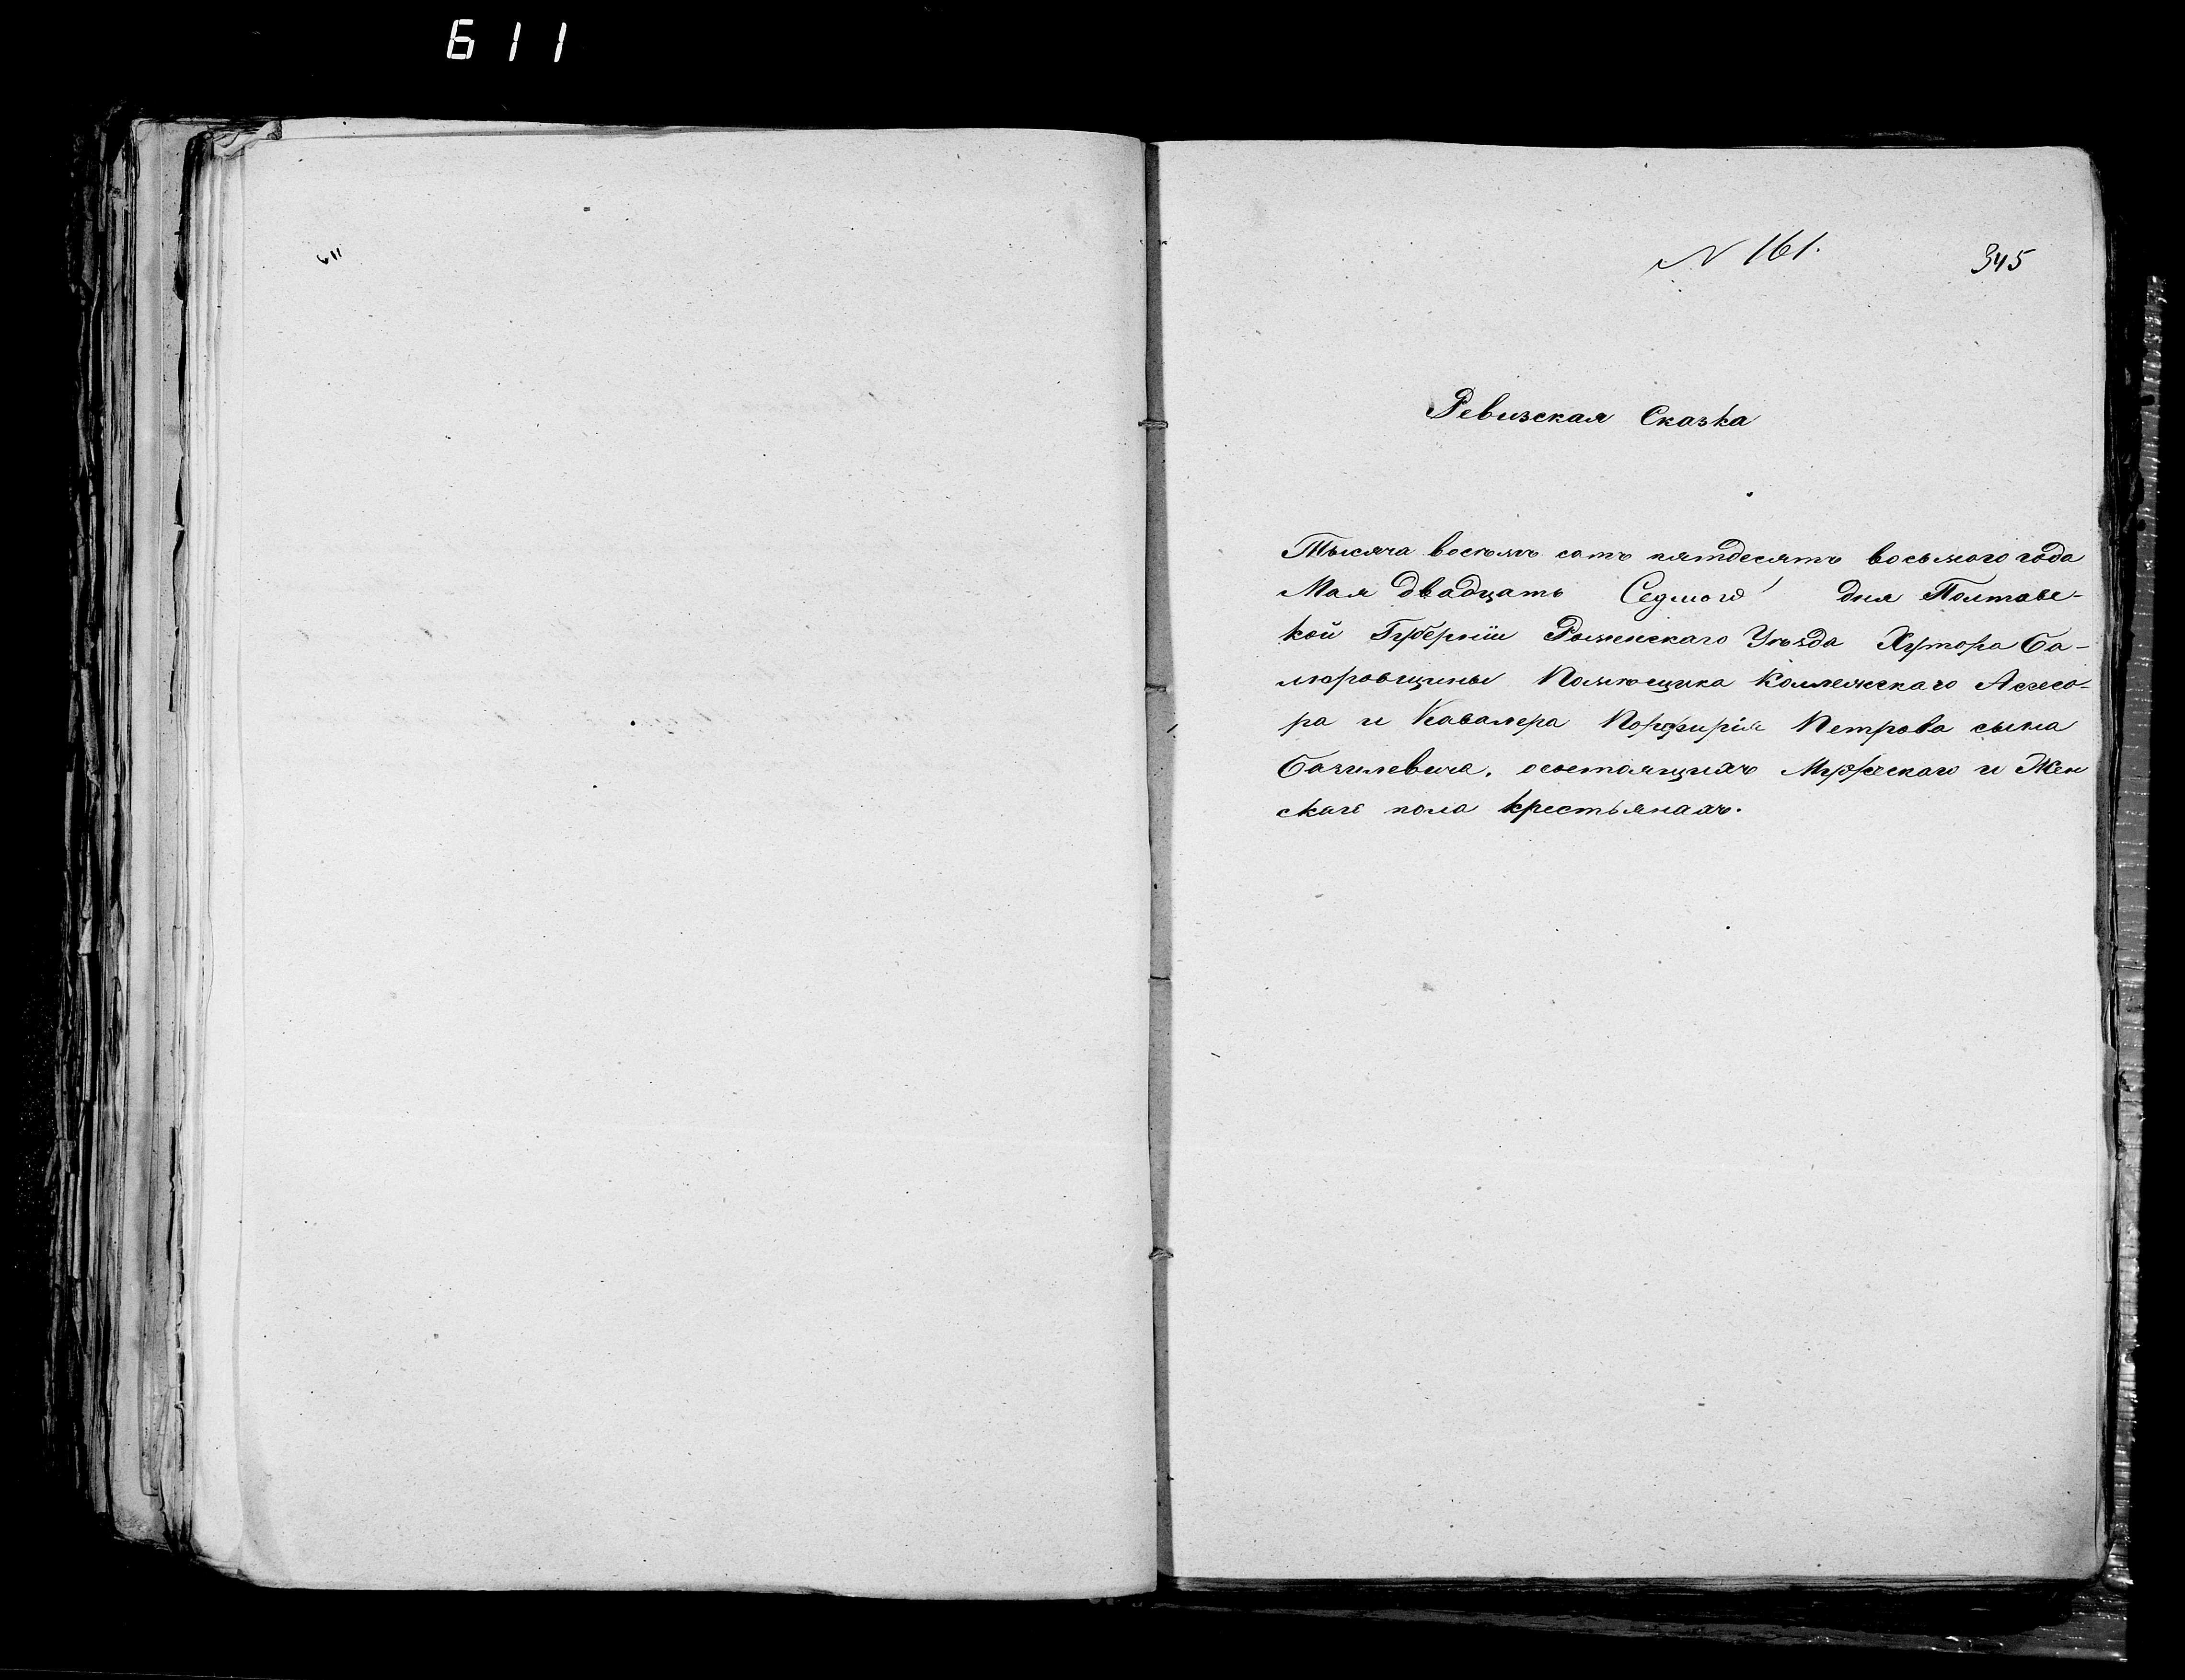 611
611
N 161.
345
Ревизская Сказка
Тысяча восемь сотъ пятдесятъ восьмого года
Мая двадцать Седмого дня Полтавс-
кой Губерніи Роменскаго Уѣзда Хутора Са-
мюровщины Помѣщика Коллежскаго Ассесо-
ра и Кавалера Порфирія Петрова сына
Базилевича, осостоящихъ Мужескаго и Жен
скаго пола крестьянахъ.